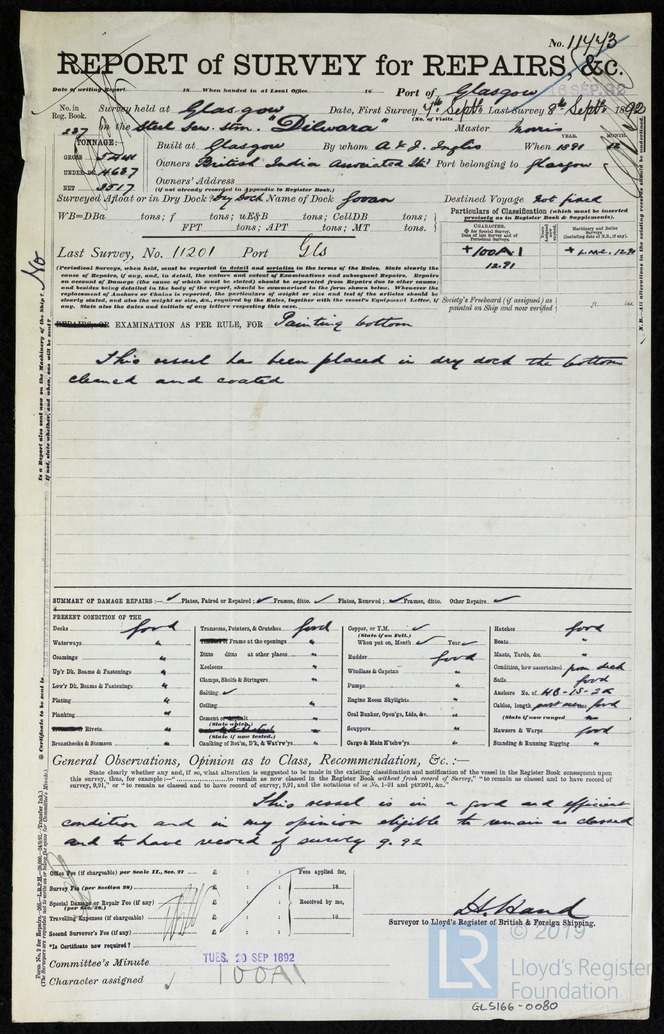 No. 11443
REPORT of SURVEY for REPAIRS, &c.
Date of writing Report 18 When handed in at Local Office 18 Port of Glasgow
16 SEP 92
No. in Reg. Book. Survey held at Glasgow Date, First Survey 7th Septr. Last Survey 8th Septr. 1892
(No. of Visits)
237 on the Steel Scw. Stm. "Dilwara" Master Norris
TONNAGE: Built at Glasgow By whom A & J. Inglis When 1891 12
YEAR. MONTH.
GROSS 5441
UNDER DK 4637 Owners British India Associated Std. Port belonging to Glasgow
NET 3517 Owners' Address
(if not already recorded in Appendix to Register Book.)
Surveyed Afloat or in Dry Dock Dry Dock Name of Dock Govan Destined Voyage Not fixed
WB=DBa tons; f tons; uE&B tons; CellDB tons;
FPT tons; APT tons; MT tons.
Particulars of Classification (which must be inserted precisely as in Register Book & Supplements).
CHARACTER.
+100A1
12.91
+L.M.C. 12.91
Last Survey, No. 11201 Port Gls
(Periodical Surveys, when held, must be reported in detail and seriatim in the terms of the Rules. State clearly the
cause of Repairs, if any, and, in detail, the nature and extent of Examinations and subsequent Repairs. Repairs
on account of Damage (the cause of which must be stated) should be separated from Repairs due to other causes;
and besides being detailed in the body of the report, should be summarized in the form shown below. Whenever the
replacement of Anchors or Chains is reported, the particulars of weight or size and test of the articles should be
clearly stated, and also the weight or size, &c., required by the Rules, together with the vessel's Equipment Letter, if
any. State also the dates and initials of any letters respecting this case.
Society's Freeboard (if assigned) as printed on Ship and now verified ft. ins.
REPAIRS, OR EXAMINATION AS PER RULE, FOR Painting bottom
This vessel has been placed in dry dock the bottom
cleaned and coated
SUMMARY OF DAMAGE REPAIRS:— ✓ Plates, Faired or Repaired; ✓ Frames, ditto. ✓ Plates, Renewed; ✓ Frames, ditto. Other Repairs. ✓
PRESENT CONDITION OF THE
Decks Good
Waterways "
Coamings "
Up'r Dk. Beams & Fastenings "
Low'r Dk. Beams & Fastenings "
Plating "
Planking "
Rivets "
Breasthooks & Stemson "
Transoms, Pointers, & Crutches Good
Frame at the openings "
Ditto ditto at other places "
Keelsons "
Clamps, Shelfs & Stringers "
Salting ✓
Ceiling "
Cement or Asphalt "
(State which)
(State if now tested.)
Caulking of Bot'm, D'k, & Wat'rw'ys "
Copper, or Y.M. ✓
(State if on Felt.)
When put on, Month ✓ Year ✓
Rudder Good
Windlass & Capstan "
Pumps "
Engine Room Skylights "
Coal Bunker, Open'gs, Lids, &c. "
Scuppers "
Cargo & Main H'tchw'ys "
Hatches Good
Boats "
Masts, Yards, &c. "
Condition, how ascertained from deck
Sails Good
Anchors No. of 4B-1S-2K
Cables, length Good
(State if now ranged)
Hawsers & Warps Good
Standing & Running Rigging "
General Observations, Opinion as to Class, Recommendation, &c.:—
State clearly whether any, and if so, what alteration is suggested to be made in the existing classification and notification of the vessel in the Register Book consequent upon
this survey, thus, for example:—" to remain as now classed in the Register Book without fresh record of Survey," "to remain as classed and to have record of
survey, 9,91," or "to remain as classed and to have record of survey, 9,91, and the notations of
This vessel is in a good and efficient
condition and in my opinion eligible to remain as classed
and to have record of survey 9.92
Office Fee (if chargeable) per Scale II., Sec. 27 £ : : Fees applied for,
Survey Fee (per Section 28) £ : : 18
Special Damage or Repair Fee (if any) (per Sec. 28.) £ : : Received by me,
Travelling Expenses (if chargeable) £ : : 18
Second Surveyor's Fee (if any) £ : :
*Is Certificate now required?
H. Hand
Surveyor to Lloyd's Register of British & Foreign Shipping.
Committee's Minute TUES. 20 SEP 1892
Character assigned 100A1
Is a Report also sent now on the Machinery of the Ship? No
If not, state whether, and when, one will be sent?
Certificate to be sent to
(The Surveyors are requested not to write on or below the space for Committee's Minute.)
N.B.—All alterations in the existing register should be underlined.
© 2019
LR
Lloyd's Register
Foundation
GLS166-0080